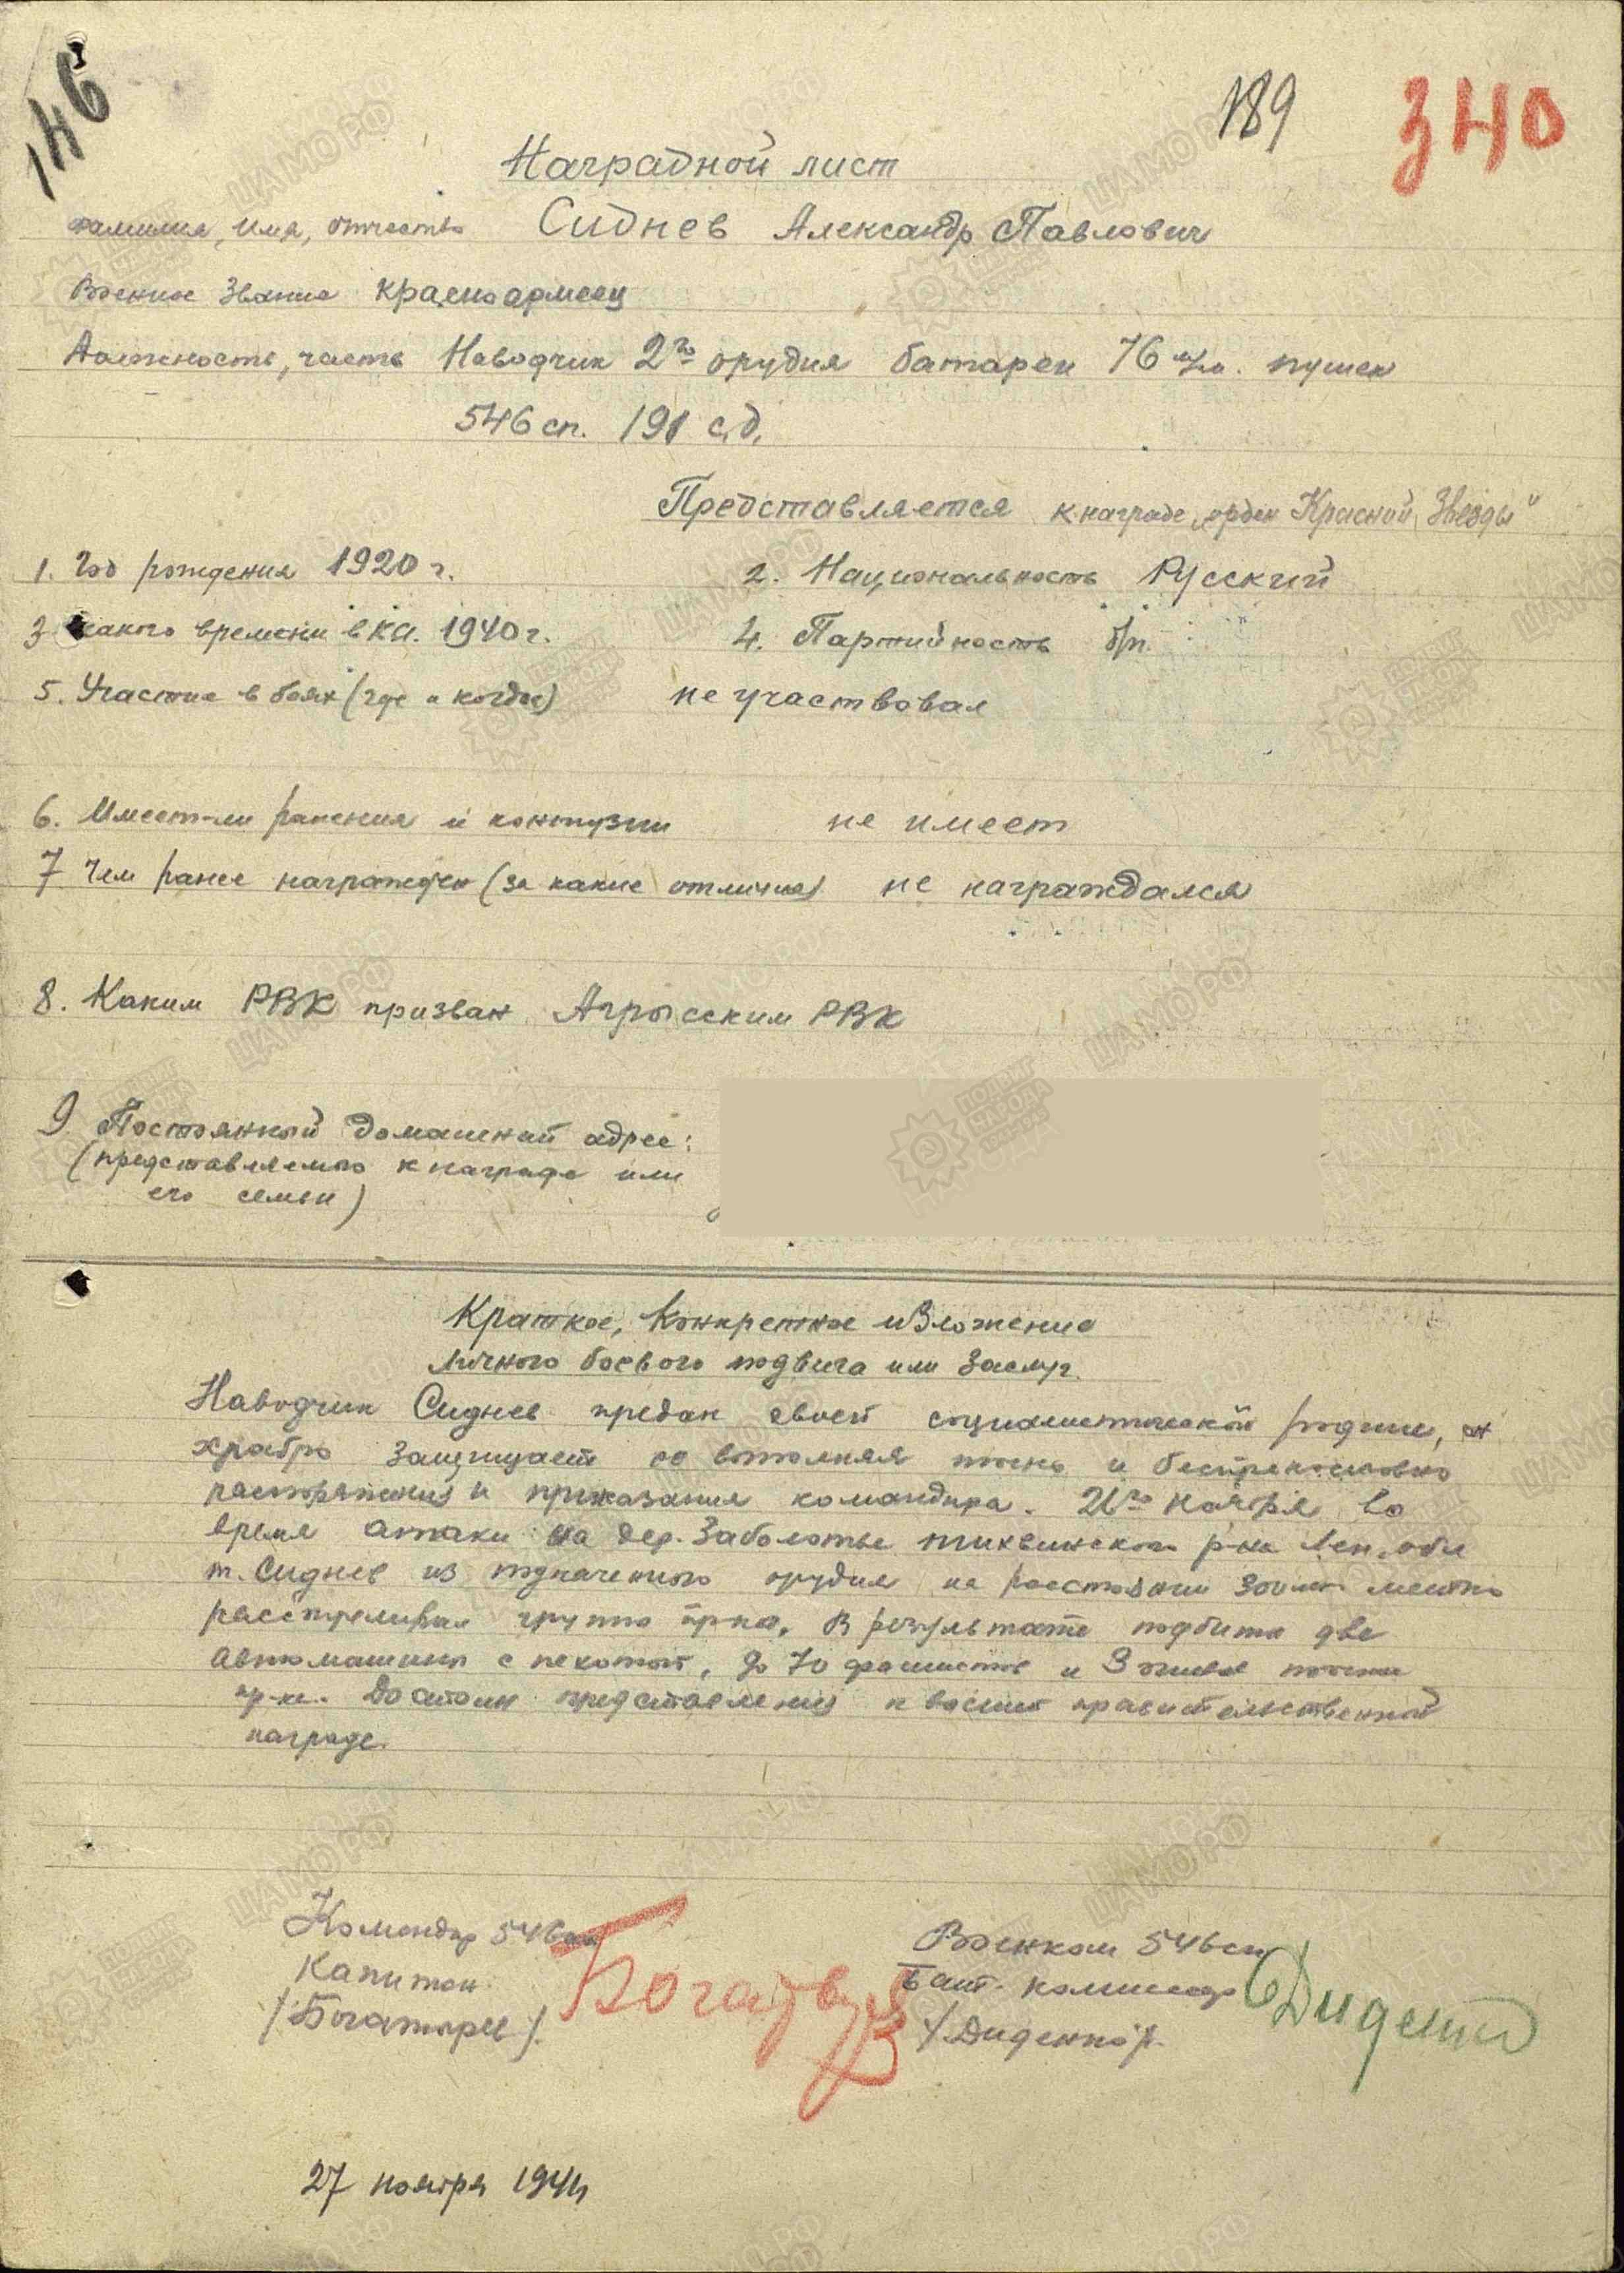 146
189
340
Наградной лист
фамилия, имя, отчество Сиднев Александр Павлович
Военное звание красноармеец
Должность, часть Наводчик 2го орудия батареи 76 м/м. пушек
546 сп. 191 с.д.
Представляется к награде „орден Красной Звезды"
1. Год рождения 1920 г. 2. Национальность Русский
3 какого времени в КА. 1940 г. 4. Партийность б/п.
5. Участие в боях (где и когда) не участвовал
6. Имеет-ли ранения и контузии не имеет
7 Чем ранее награжден (за какие отличия) не награждался
8. Каким РВК призван Агрызским РВК
9 Постоянный домашний адрес:
(представляемого к награде или
его семьи)
Краткое, конкретное изложение
личного боевого подвига или заслуг.
Наводчик Сиднев предан своей социалистической родине,
храбро защищает ее выполняя точно и беспрекословно
распоряжения и приказания командира. ноября во
время атаки на дер. Заболотье тихвинского р-на Лен. обл
т. Сиднев из орудия на расстоянии 300 мт метко
расстреливал группы пр-ка. В результате подбито две
автомашины с пехотой, до 70 фашистов и 3 точки
пр-ка. Достоин представления к высшей правительственной
награде.
Командир 546 сп
Капитан
/Богатырев/.
Военком 546 сп
Бат. комиссар
/Диденко/.
27 ноября 1941